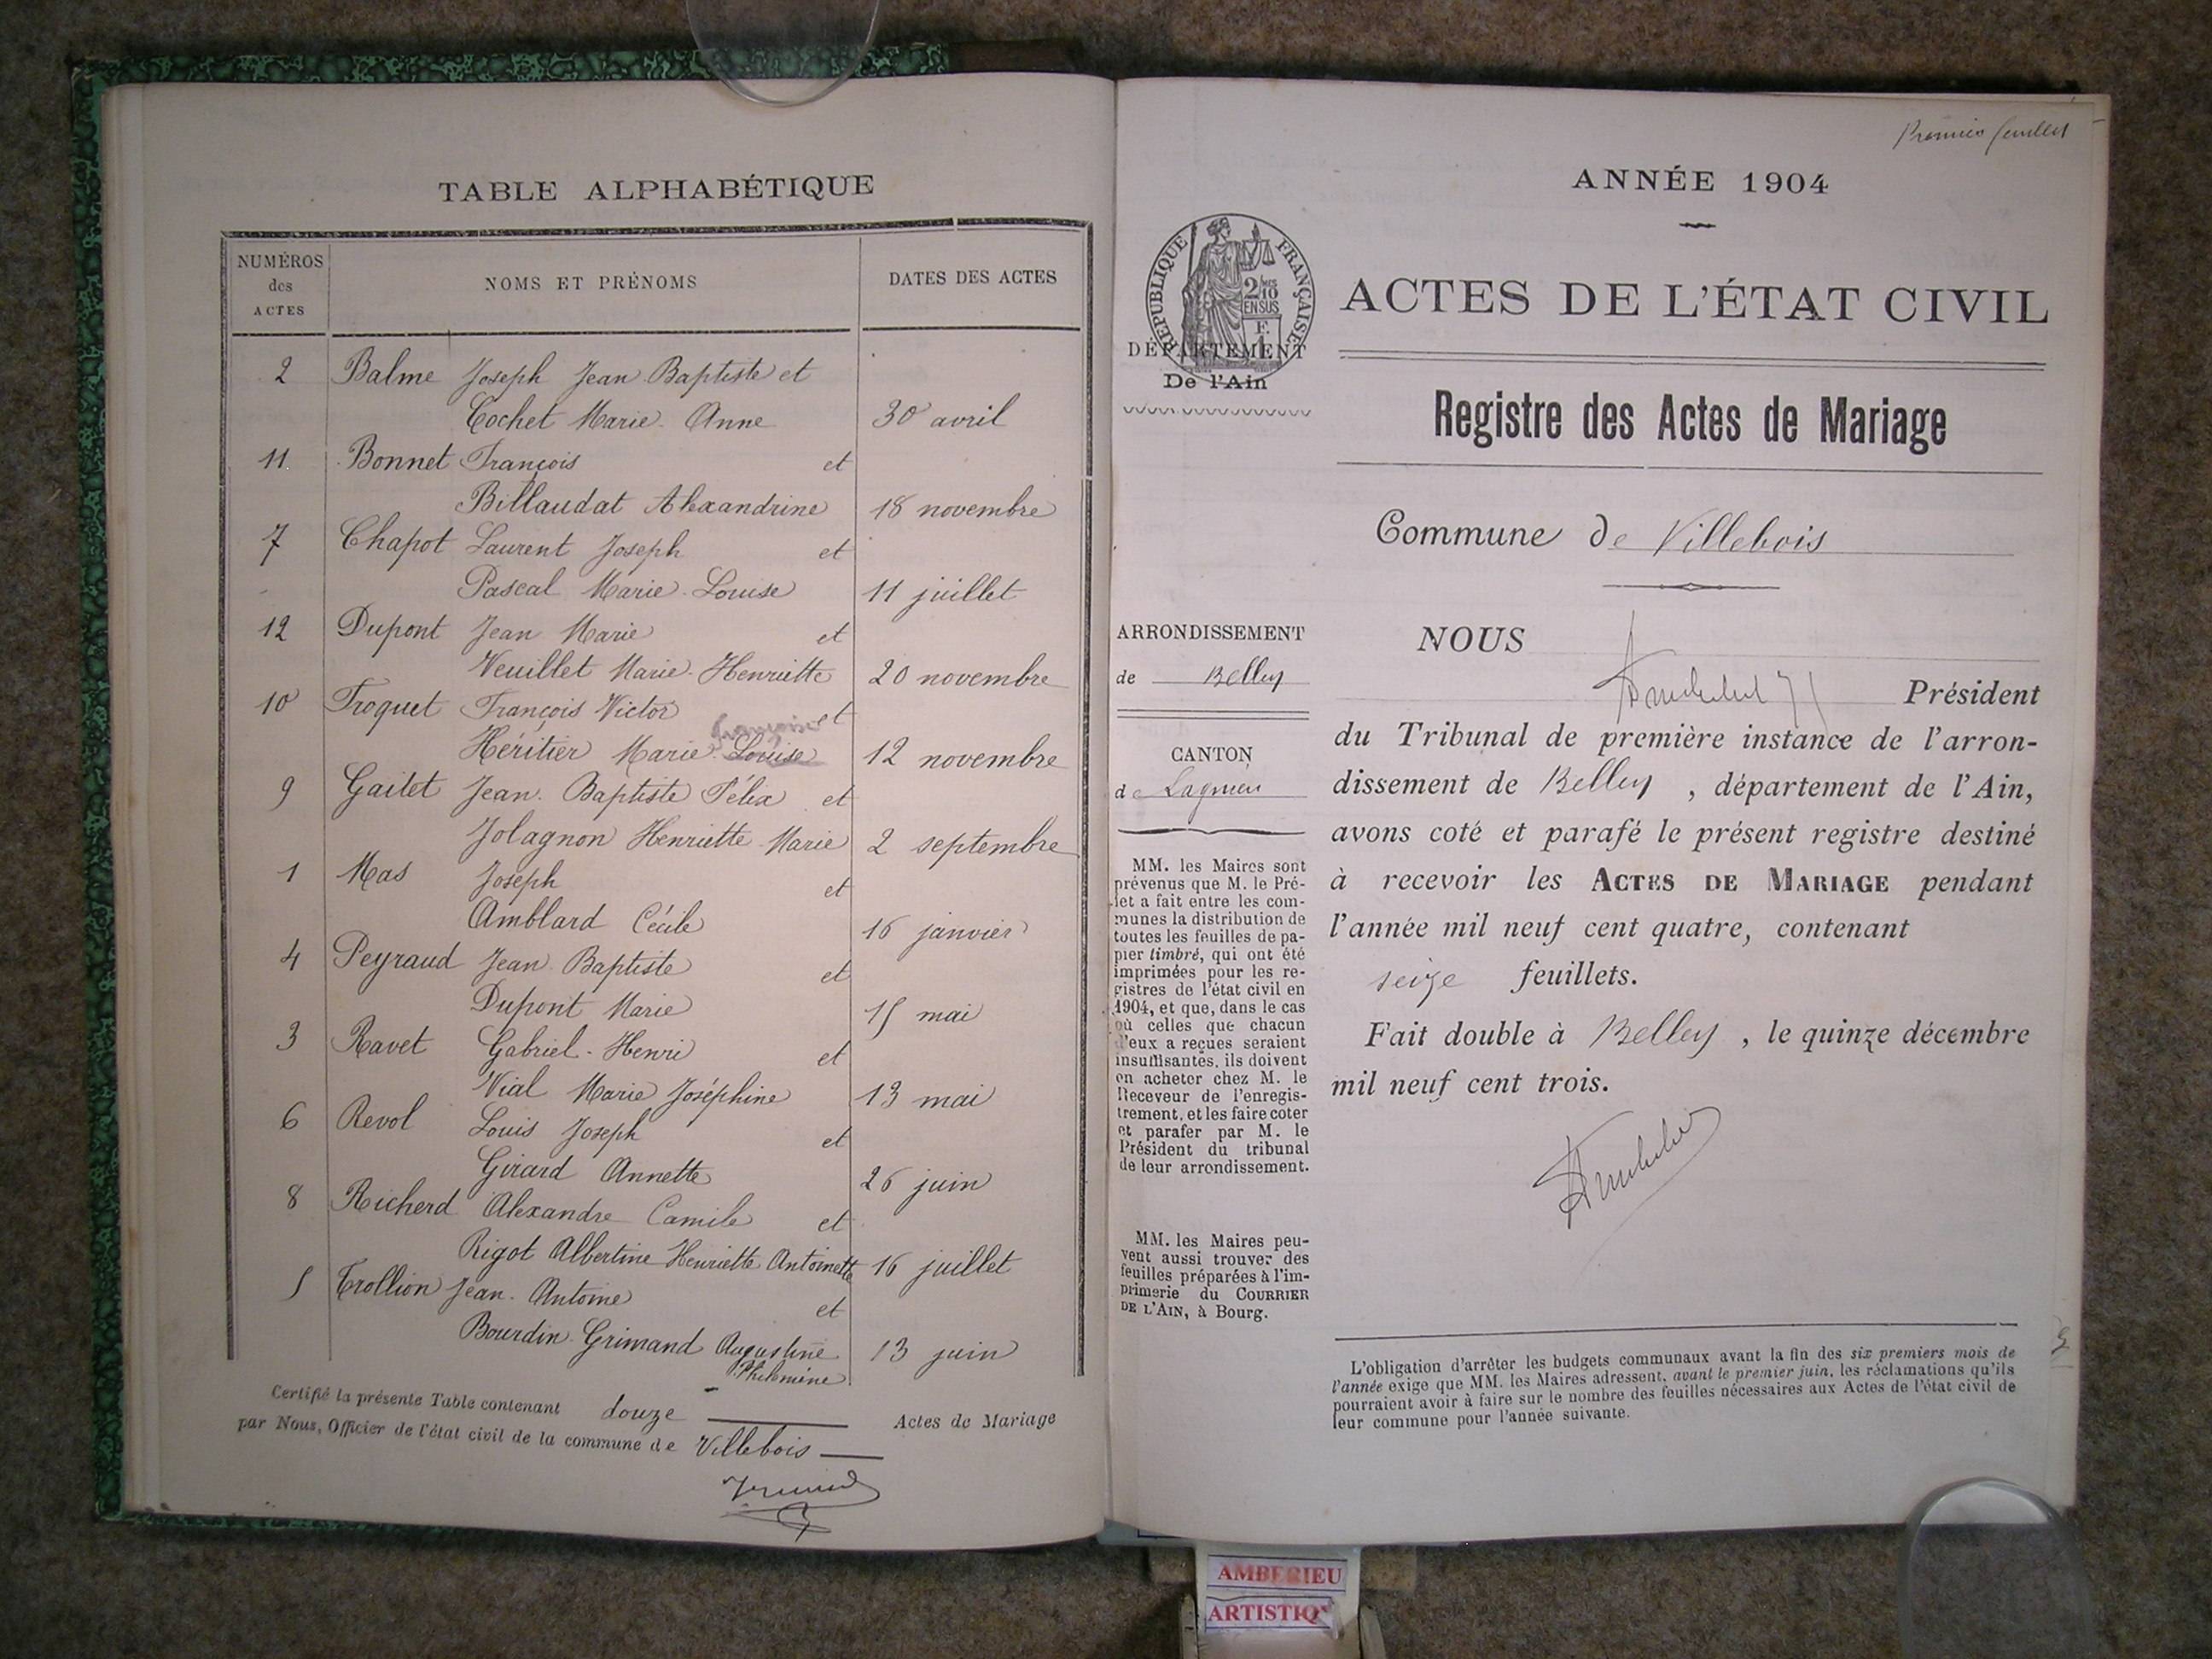 TABLE ALPHABÉTIQUE
NUMÉROS
des
ACTES
NOMS ET PRÉNOMS
DATES DES ACTES
2 Balme Joseph Jean Baptiste et
Cochet Marie Anne 30 avril
11 Bonnet François et
Billaudat Alexandrine 18 novembre
7 Chapot Laurent Joseph et
Pascal Marie Louise 11 juillet
12 Dupont Jean Marie et
Veuillet Marie Henriette 20 novembre
10 Froquet François Victor et
françoise
Héritier Marie Louise 12 novembre
9 Gaitet Jean Baptiste Félix et
Jolagnon Henriette Marie 2 septembre
1 Mas Joseph et
Amblard Cécile 16 janvier
4 Peyraud Jean Baptiste et
Dupont Marie 15 mai
3 Ravet Gabriel-Henri et
Vial Marie Joséphine 13 mai
6 Revol Louis Joseph et
Girard Annette 26 juin
8 Richerd Alexandre Camile et
Rigot Albertine Henriette Antoinette 16 juillet
5 Trollion Jean Antoine et
Bourdin Grimand Augustine 13 juin
Philomine
Certifié la présente Table contenant douze Actes de Mariage
par Nous, Officier de l'état civil de la commune de Villebois
Premier feuillet
ANNÉE 1904
RÉPUBLIQUE FRANÇAISE
2/10
EN SUS
F.
DÉPARTEMENT
De l'Ain
ACTES DE L'ÉTAT CIVIL
Registre des Actes de Mariage
Commune de Villebois
ARRONDISSEMENT
de Belley
CANTON
de Lagnieu
MM. les Maires sont
prévenus que M. le Pré-
fet a fait entre les com-
munes la distribution de
toutes les feuilles de pa-
pier timbré, qui ont été
imprimées pour les re-
gistres de l'état civil en
1904, et que, dans le cas
où celles que chacun
d'eux a reçues seraient
insuffisantes, ils doivent
en acheter chez M. le
Receveur de l'enregis-
trement, et les faire coter
et parafer par M. le
Président du tribunal
de leur arrondissement.
MM. les Maires peu-
vent aussi trouver des
feuilles préparées à l'im-
primerie du COURRIER
DE L'AIN, à Bourg.
NOUS
Président
du Tribunal de première instance de l'arron-
dissement de Belley, département de l'Ain,
avons coté et parafé le présent registre destiné
à recevoir les ACTES DE MARIAGE pendant
l'année mil neuf cent quatre, contenant
seize feuillets.
Fait double à Belley, le quinze décembre
mil neuf cent trois.
L'obligation d'arrêter les budgets communaux avant la fin des six premiers mois de
l'année exige que MM. les Maires adressent, avant le premier juin, les réclamations qu'ils
pourraient avoir à faire sur le nombre des feuilles nécessaires aux Actes de l'état civil de
leur commune pour l'année suivante.
AMBERIEU
ARTISTIQ